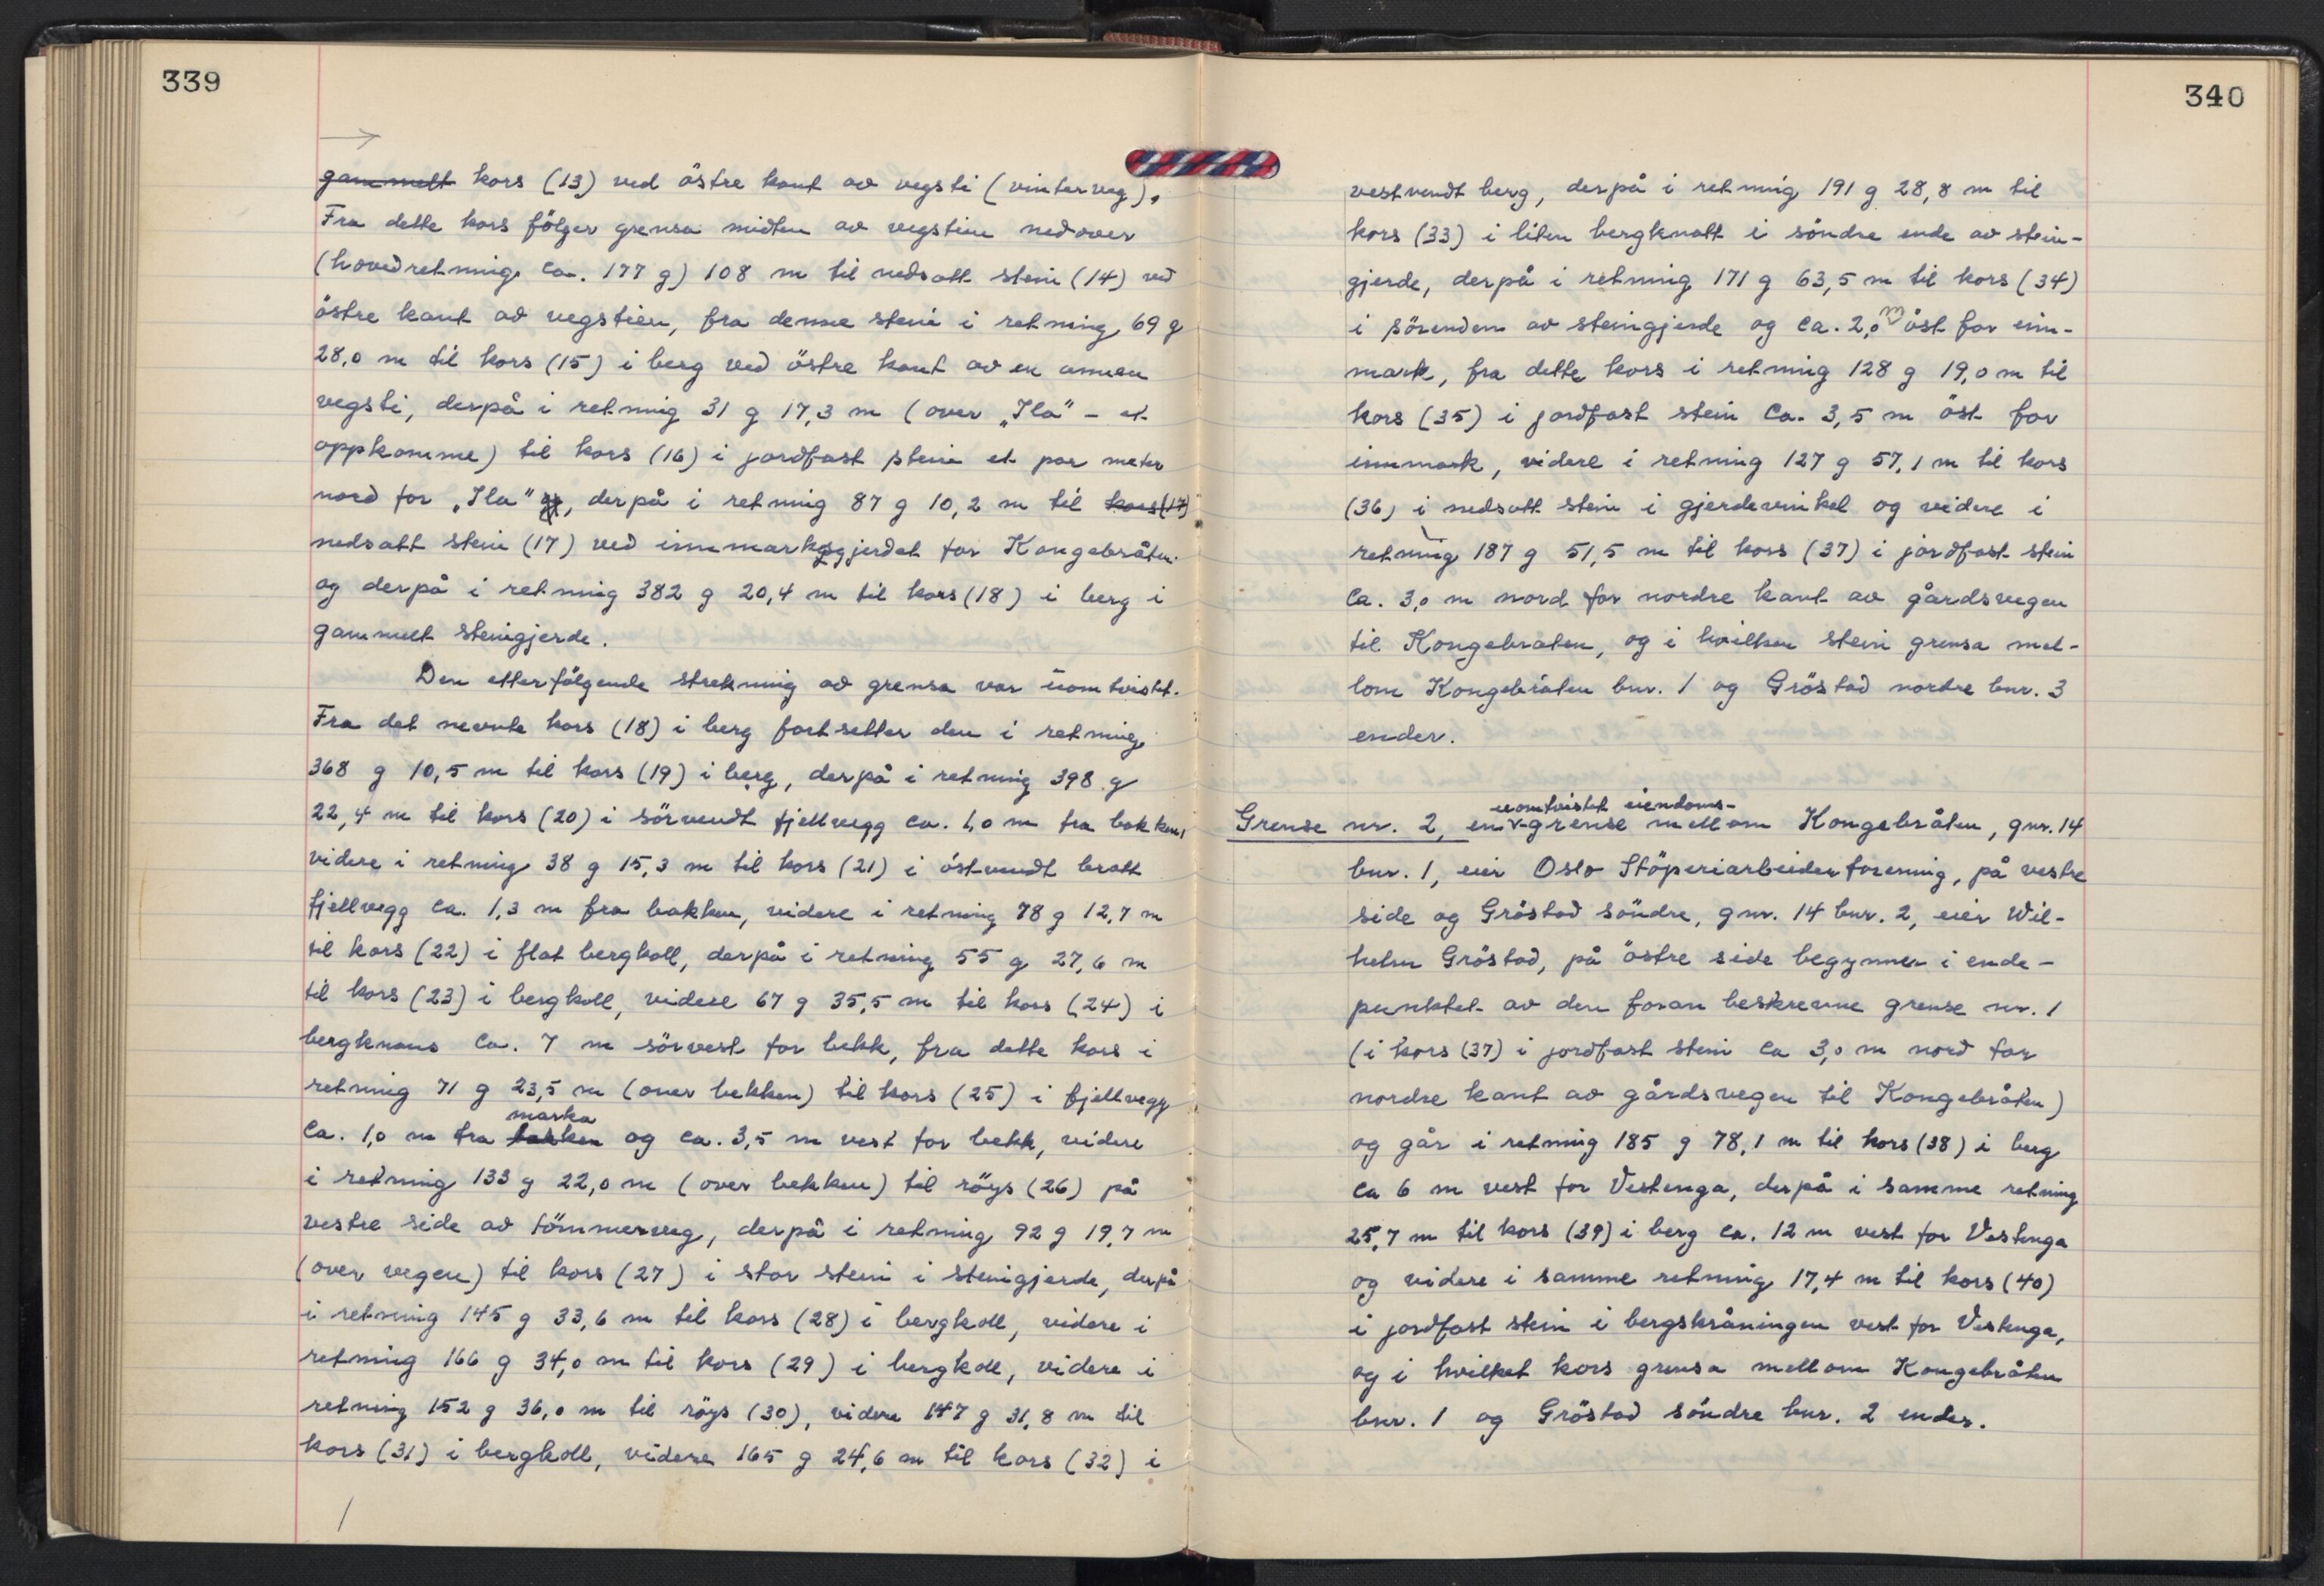 339
gammelt kors (13) ved östre kant av vegsti (vinterveg).
Fra dette kors fölger grensa midten av vegstien nedover
(hovedretning ca. 177 g) 108 m til nedsatt stein (14) ved
östre kant av vegstien, fra denne stein i retning 69 g
28,0 m til kors (15) i berg ved östre kant av en annen
vegsti, derpå i retning 31 g 17,3 m (over „Ila" - et
oppkomme) til kors (16) i jordfast stein et par meter
nord for „Ila", derpå i retning 87 g 10,2 m til kors (17)
nedsatt stein (17) ved innmarksgjerdet for Kongebråten
og derpå i retning 382 g 20,4 m til kors (18) i berg i
gammelt steingjerde.
Den etterfölgende strekning av grensa var uomtvistet.
Fra det nevnte kors (18) i berg fortsetter den i retning
368 g 10,5 m til kors (19) i berg, derpå i retning 398 g
22,4 m til kors (20) i sörvendt fjellvegg ca. 1,0 m fra bakken,
videre i retning 38 g 15,3 m til kors (21) i östvendt bratt
fjellvegg ca. 1,3 m fra bakken, videre i retning 78 g 12,7 m
til kors (22) i flat bergkoll, derpå i retning 55 g 27,6 m
til kors (23) i bergkoll, videre 67 g 35,5 m til kors (24) i
bergknaus ca. 7 m sörvest for bekk, fra dette kors i
retning 71 g 23,5 m (over bekken) til kors (25) i fjellvegg
marka
ca. 1,0 m fra bakken og ca. 3,5 m vest for bekk, videre
i retning 133 g 22,0 m (over bekken) til röys (26) på
vestre side av tömmerveg, derpå i retning 92 g 19,7 m
(over vegen) til kors (27) i stor stein i steingjerde, derpå
i retning 145 g 33,6 m til kors (28) i bergkoll, videre i
retning 166 g 34,0 m til kors (29) i bergkoll, videre i
retning 152 g 36,0 m til röys (30), videre 147 g 31,8 m til
kors (31) i bergkoll, videre 165 g 24,6 m til kors (32) i
340
vestvendt berg, derpå i retning 191 g 28,8 m til
kors (33) i liten bergknatt i söndre ende av stein-
gjerde, derpå i retning 171 g 63,5 m til kors (34)
i sörenden av steingjerde og ca. 2,0 m öst for inn-
mark, fra dette kors i retning 128 g 19,0 m til
kors (35) i jordfast stein ca. 3,5 m öst for
innmark, videre i retning 127 g 57,1 m til kors
(36) i nedsatt stein i gjerdevinkel og videre i
retning 187 g 51,5 m til kors (37) i jordfast stein
ca. 3,0 m nord for nordre kant av gårdsvegen
til Kongebråten, og i hvilken stein grensa mel-
lom Kongebråten bnr. 1 og Gröstad nordre bnr. 3
ender.
uomtvistet eiendoms-
Grense nr. 2, en grense mellom Kongebråten, gnr. 14
bnr. 1, eier Oslo Stöperiarbeiderforening, på vestre
side og Gröstad söndre, gnr. 14 bnr. 2, eier Wil-
helm Gröstad, på östre side begynner i ende-
punktet av den foran beskrevne grense nr. 1
(i kors (37) i jordfast stein ca 3,0 m nord for
nordre kant av gårdsvegen til Kongebråten)
og går i retning 185 g 78,1 m til kors (38) i berg
ca 6 m vest for Vestenga, derpå i samme retning
25,7 m til kors (39) i berg ca. 12 m vest for Vestenga
og videre i samme retning 17,4 m til kors (40)
i jordfast stein i bergskråningen vest for Vestenga,
og i hvilket kors grensa mellom Kongebråten
bnr. 1 og Gröstad söndre bnr. 2 ender.